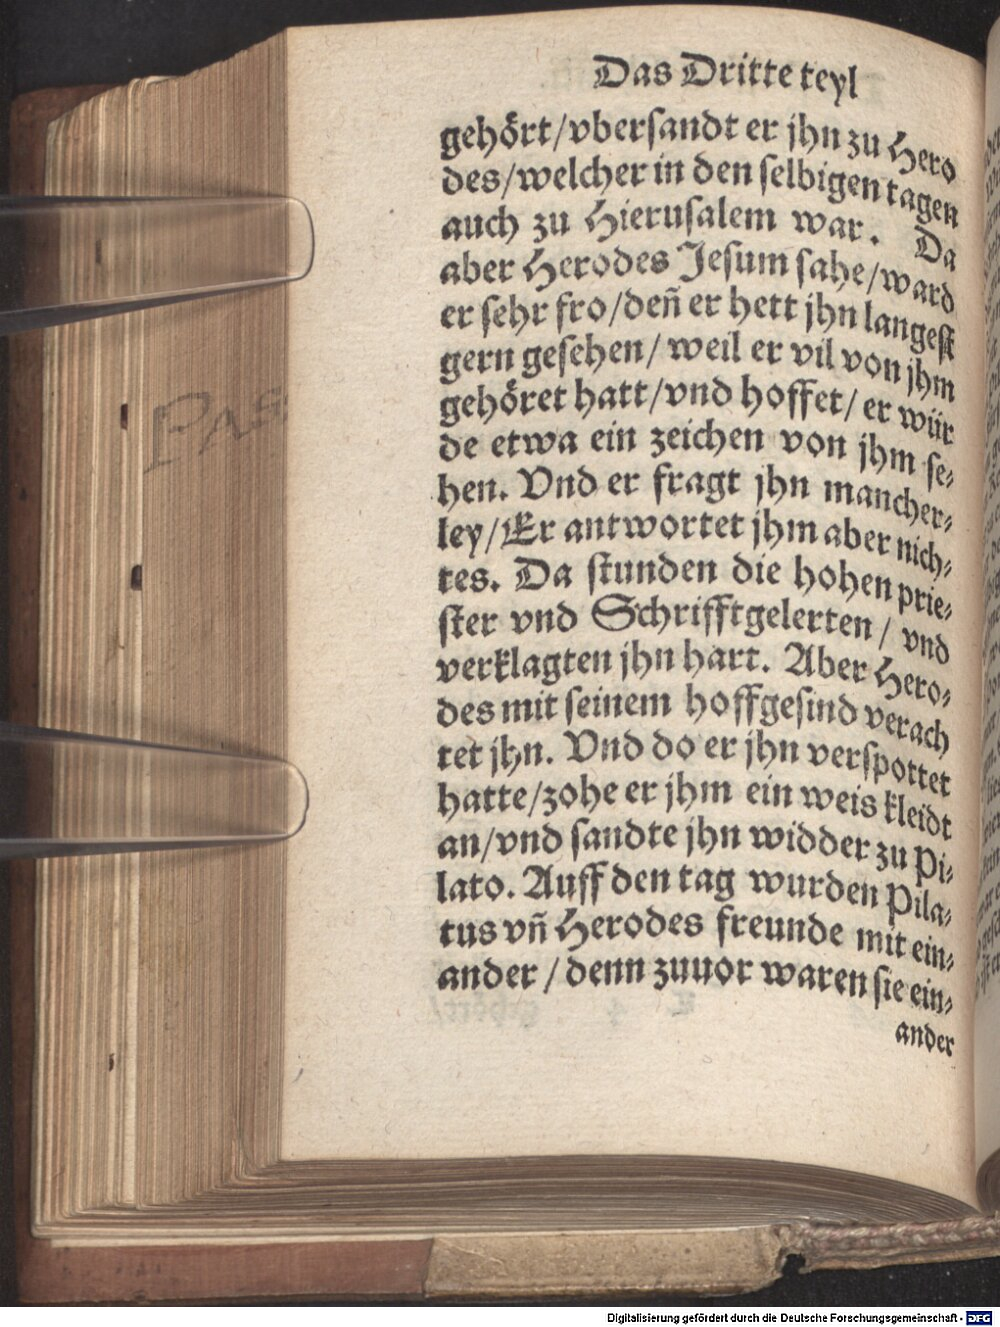 Das Dritte teyl
gehört/vbersandt er jhn zu Hero
des/welcher in den selbigen tagen
auch zu Hierusalem war. Da
aber Herodes Jesum sahe/ward
er sehr fro/deñ er hett jhn langest
gern gesehen/ weil er vil von jhm
gehöret hatt/vnd hoffet/ er wür
de etwa ein zeichen von jhm se-
hen. Vnd er fragt jhn mancher-
ley/Er antwortet jhm aber nich-
tes. Da stunden die hohen prie-
ster vnd Schrifftgelerten/ vnd
verklagten jhn hart. Aber Hero-
des mit seinem hoffgesind verach
tet jhn. Vnd do er jhn verspottet
hatte/zohe er jhm ein weis kleidt
an/vnd sandte jhn widder zu Pi-
lato. Auff den tag wurden Pila-
tus vñ Herodes freunde mit ein-
ander/ denn zuuor waren sie ein-
ander
PAS
Digitalisierung gefördert durch die Deutsche Forschungsgemeinschaft - DFG